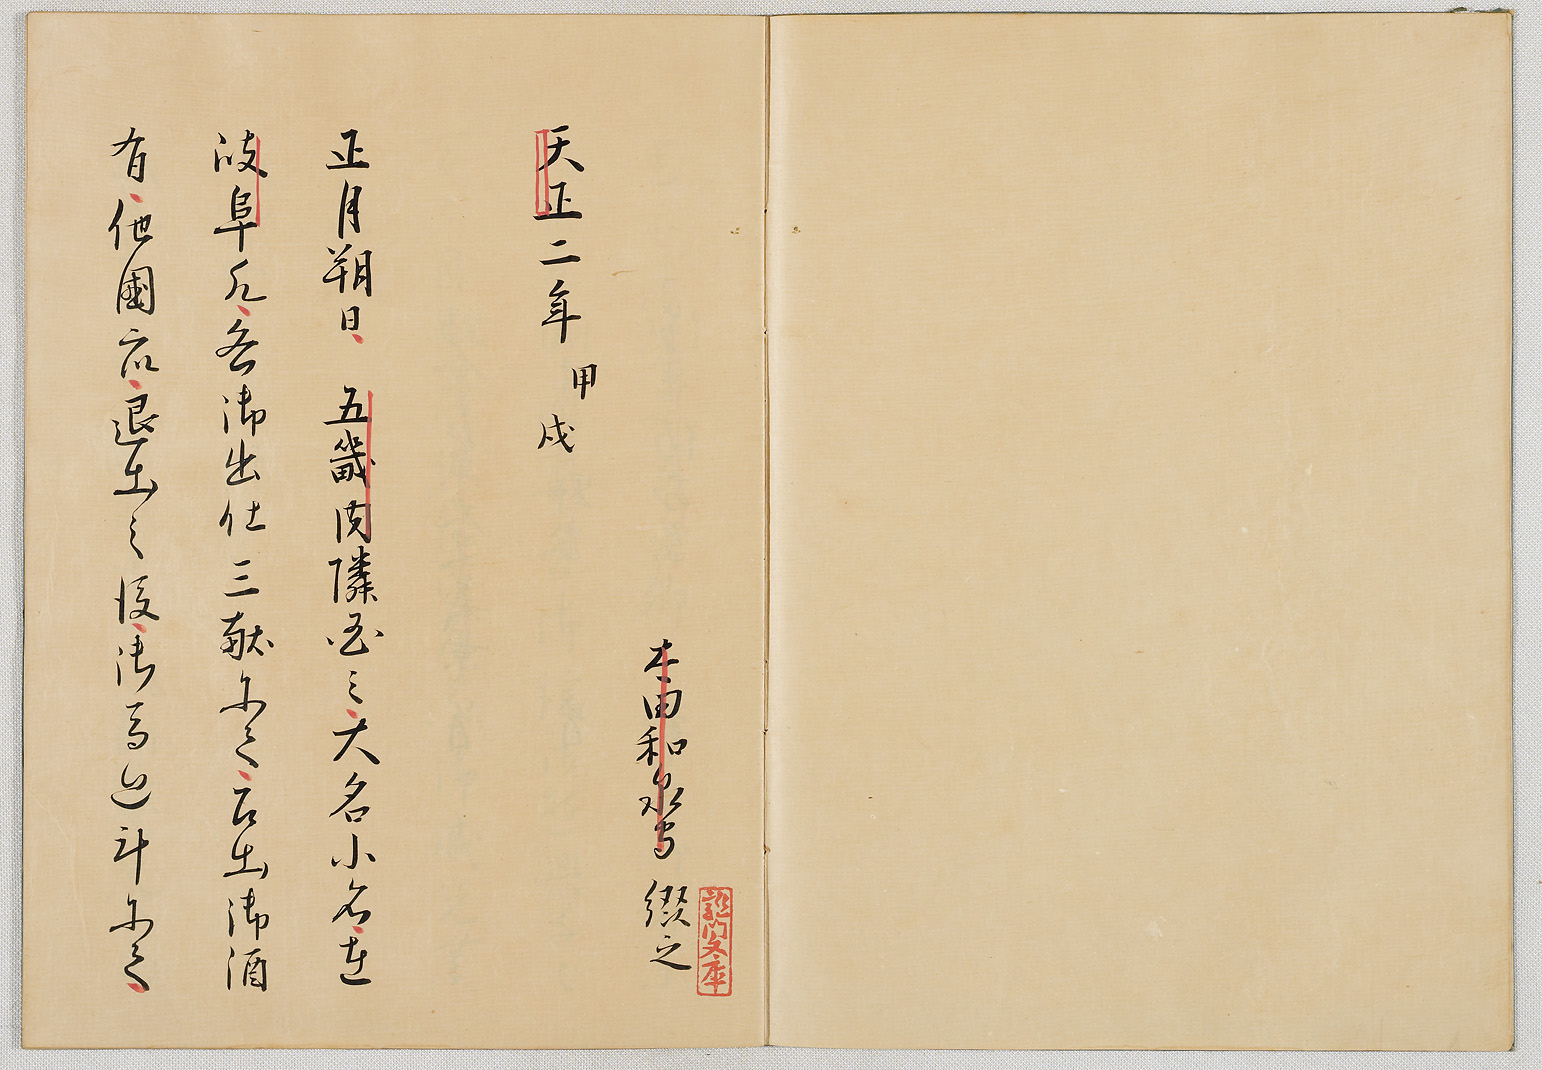 太田和泉守 綴之
龍門文庫
天正二年 甲戌
正月朔日 五畿内隣国之大名小名在
岐阜 各御出仕三献尓て召出御酒
有他國衆退出之後御馬廻斗尓て